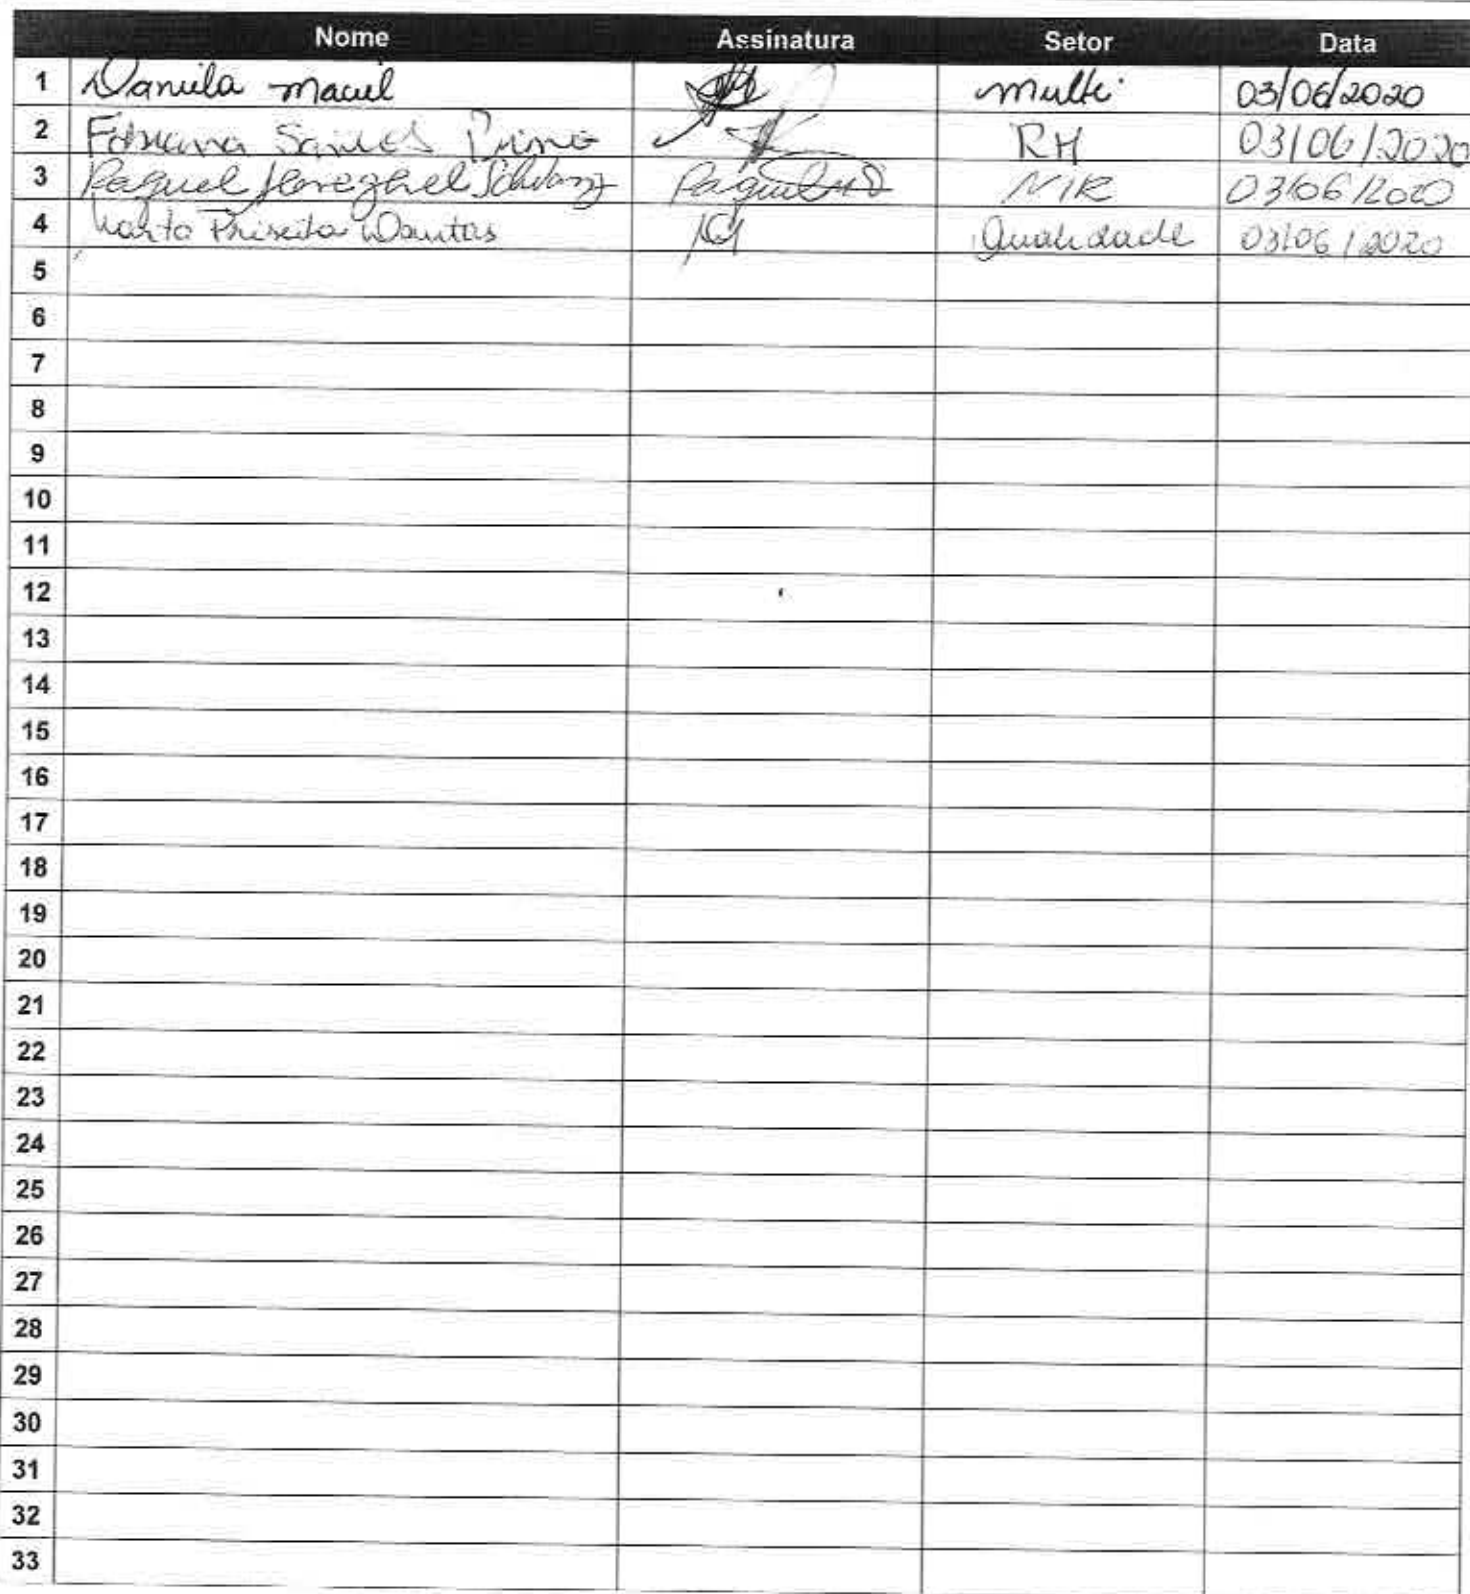 Nome Assinatura Setor Data
1 Daniela Maciel Multi 03/06/2020
2 Fabiana Santos RH 03/06/2020
3 Raquel Raquel NIR 03/06/2020
4 Priscila Dantas Qualidade 03/06/2020
5
6
7
8
9
10
11
12
13
14
15
16
17
18
19
20
21
22
23
24
25
26
27
28
29
30
31
32
33